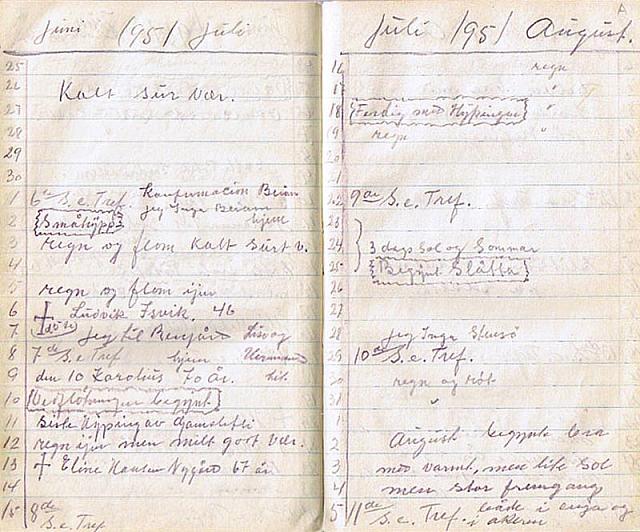 Juni 1951 Juli
25
26 Kalt sur vær.
27
28
29
30
1 6te S.e. Tref. Konfirmacion Beian
jeg Inga Beian
2 {Småhypp} hjem
3 regn og flom Kalt surt v.
4
5 regn og flom igjen
6 + Ludvik Isvik, 46
7 døde jeg til
8 7de S.e. Tref hjem Herman
9 den 10 Karolius 70 år. hit.
10 begynt
11 siste Hypping av
12 regn igjen men mildt gort vær.
13 + Eline Hansen Nygård 67 år
14
15 8de S.e. Tref
Juli 1951 August.
16 regn
17 "
18 {Ferdig med Hyppingen}
19 regn "
20
21
22 9de S.e. Tref.
23
24 3 dags Sol og Sommar
25 {Begynt Slåtta}
26
27
28 jeg Inga
29 10de S.e. Tref.
30 regn og
31 "
1 August begynte bra
2
3 med varmt, men lite Sol
4 men stor fremgang
5 11de S.e. Tref. både i enga og
i åkeren